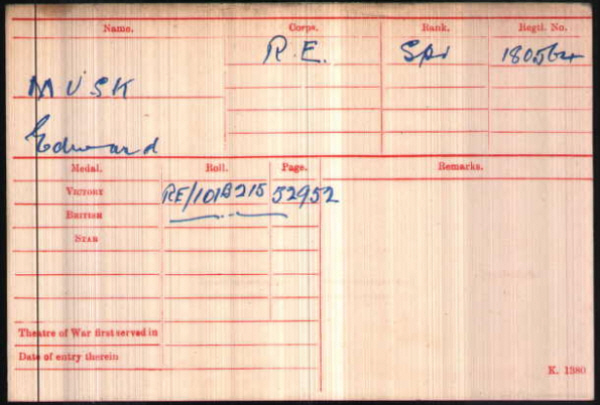 Name. Corps. Rank. Regtl. No.
R.E. Spr 180564
MUSK
Edward
Medal. Roll. Page. Remarks.
VICTORY RE/101B215 52952
BRITISH
STAR
Theatre of War first served in
Date of entry therein
K. 1380